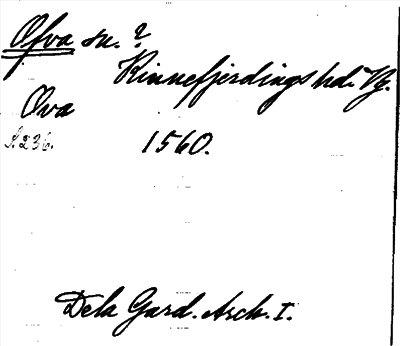 Öfva sn. ?
Kinnefjerdings hd. Vg.
Ova
S. 236. 1560.
Dela Gard. Arch. I.